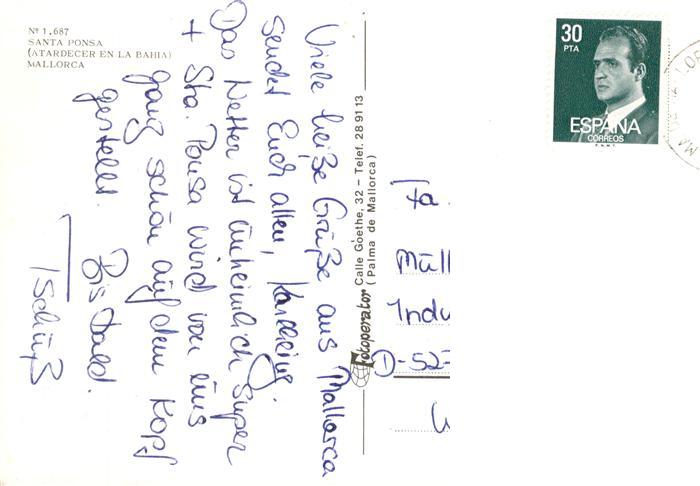 Nº 1.687
SANTA PONSA
(ATARDECER EN LA BAHIA)
MALLORCA
Viele heiße Grüße aus Mallorca
sendet Euch allen,
Das Wetter ist unheimlich super
+ Sta. Ponsa wird von uns
ganz schön auf dem Kopf
gestellt.
Bis bald.
Tschüß
Fotoperator Calle Goethe, 32 – Telef. 28 91 13
(Palma de Mallorca)
30
PTA
ESPAÑA
CORREOS
F.N.M.T.
Fa.
Müll
Indu
D-523
W